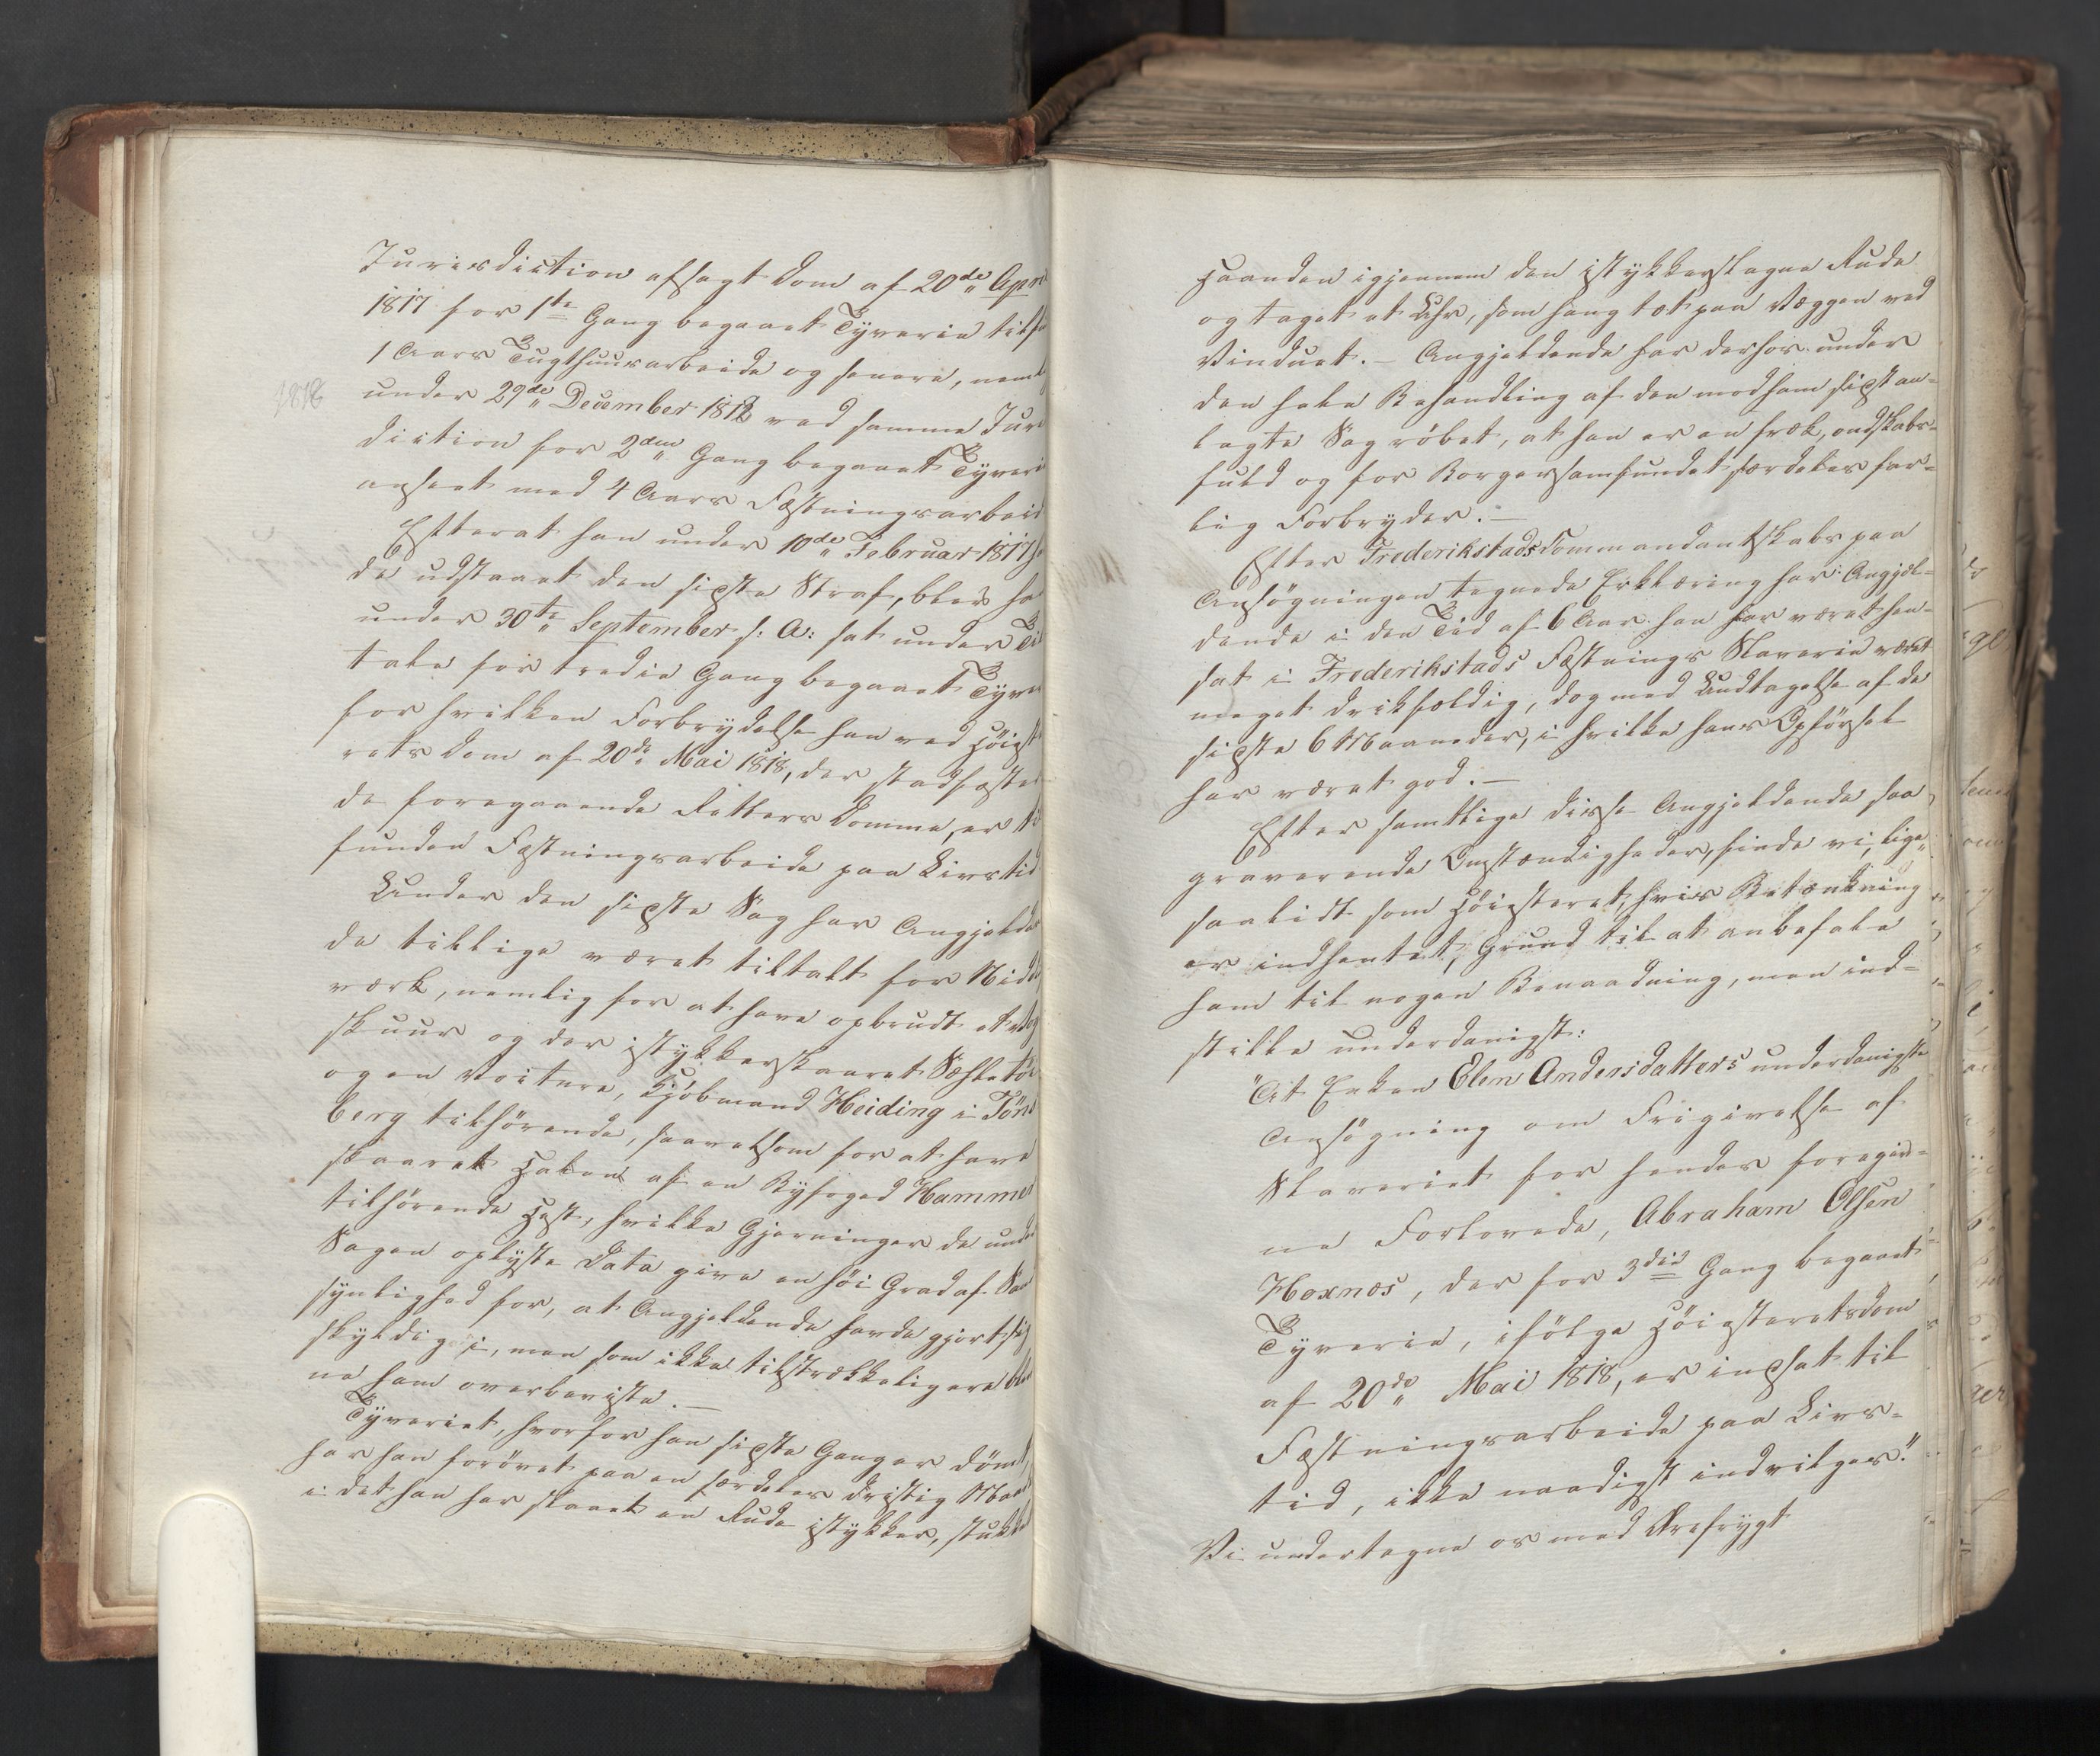 Jurisdiction afsagt Dom af 20de Apri
1817 for 1ste Gang begaaet Tyverie til
1 Aars Tugthuusarbeide og senere, neml
1818
under 29de December 1812 ved samme Juris
diction for 2den Gang begaaet Tyveri
anseet med 4 Aars Fæstningsarbeid
Efterat han under 10de Februar 1817 ha
de udstaaet den sidste Straf, blev ha
under 30te September s: A: sat under Til
tale for tredie Gang begaaet Tyver
for hvilken Forbrydelse han ved Høieste
rets Dom af 20de Mai 1818, der stadfæste
de foregaaende Retters Domme, er til
funden Fæstningsarbeide paa Livstid
Under den sidste Sag har Angjelden
de tillige været tiltalt for Nidd
værk, nemlig for at have opbrudt et Vog
skuur og der istykkerskaaret Sæletöi
og en Voiture, Kjöbmand Heiding i Töns
berg tilhörende, saavelsom for at have
skaaret Halen af en Byfoged Hammer
tilhörende Hest, hvilke Gjerninger de unde
Sagen oplyste Data give en höi Grad af San
synlighed for, at Angjeldende havde gjort sig
skyldig i, men som ikke tilstrækkeligere ble
ne ham overbeviste.—
Tyveriet, hvorfor han sidste Gang er dömt,
har han forövet paa en særdeles dristig Maad
i det han har skaaret en Rude istykker, stukke
Haanden igjennem den istykkerslagne Rude
og taget et Uhr, som hang tæt paa Væggen ved
Vinduet.— Angjeldende har derhos under
den hele Behandling af den mod ham sidst an-
lagte Sag röbet, at han er en fræk, ondskabs-
fuld og for Borgersamfundet særdeles far-
lig Forbryder.—
Efter Frederikstads Commandantskabs paa
Ansögningen tegnede Erklæring har Angjel-
dende i den Tid af 6 Aar han har været hen-
sat i Frederikstads Fæstnings Slaverie været
meget drikfældig, dog med Undtagelse af de
sidste 6 Maaneder, i hvilke hans Opförsel
har været god.—
Efter samtlige disse Angjeldende saa
graverende Omstændigheder, finde vi, lige
saalidt som Höiesteret, hvis Betænkning
er indhentet, Grund til at anbefale
ham til nogen Benaadning, men ind-
stille underdanigst:
"At Enken Elen Andersdatters underdanigste
Ansögning om Frigivelse af
Slaveriet for hendes foregiv-
ne Forlovede, Abraham Olsen
Hoxnæs, der for 3die Gang begaaet
Tyverie, ifölge Höiesteretsdom
af 20de Mai 1818, er indsat til
Fæstningsarbeide paa Livs-
tid, ikke naadigst indvilges."
Vi undertegne os med Ærefrygt